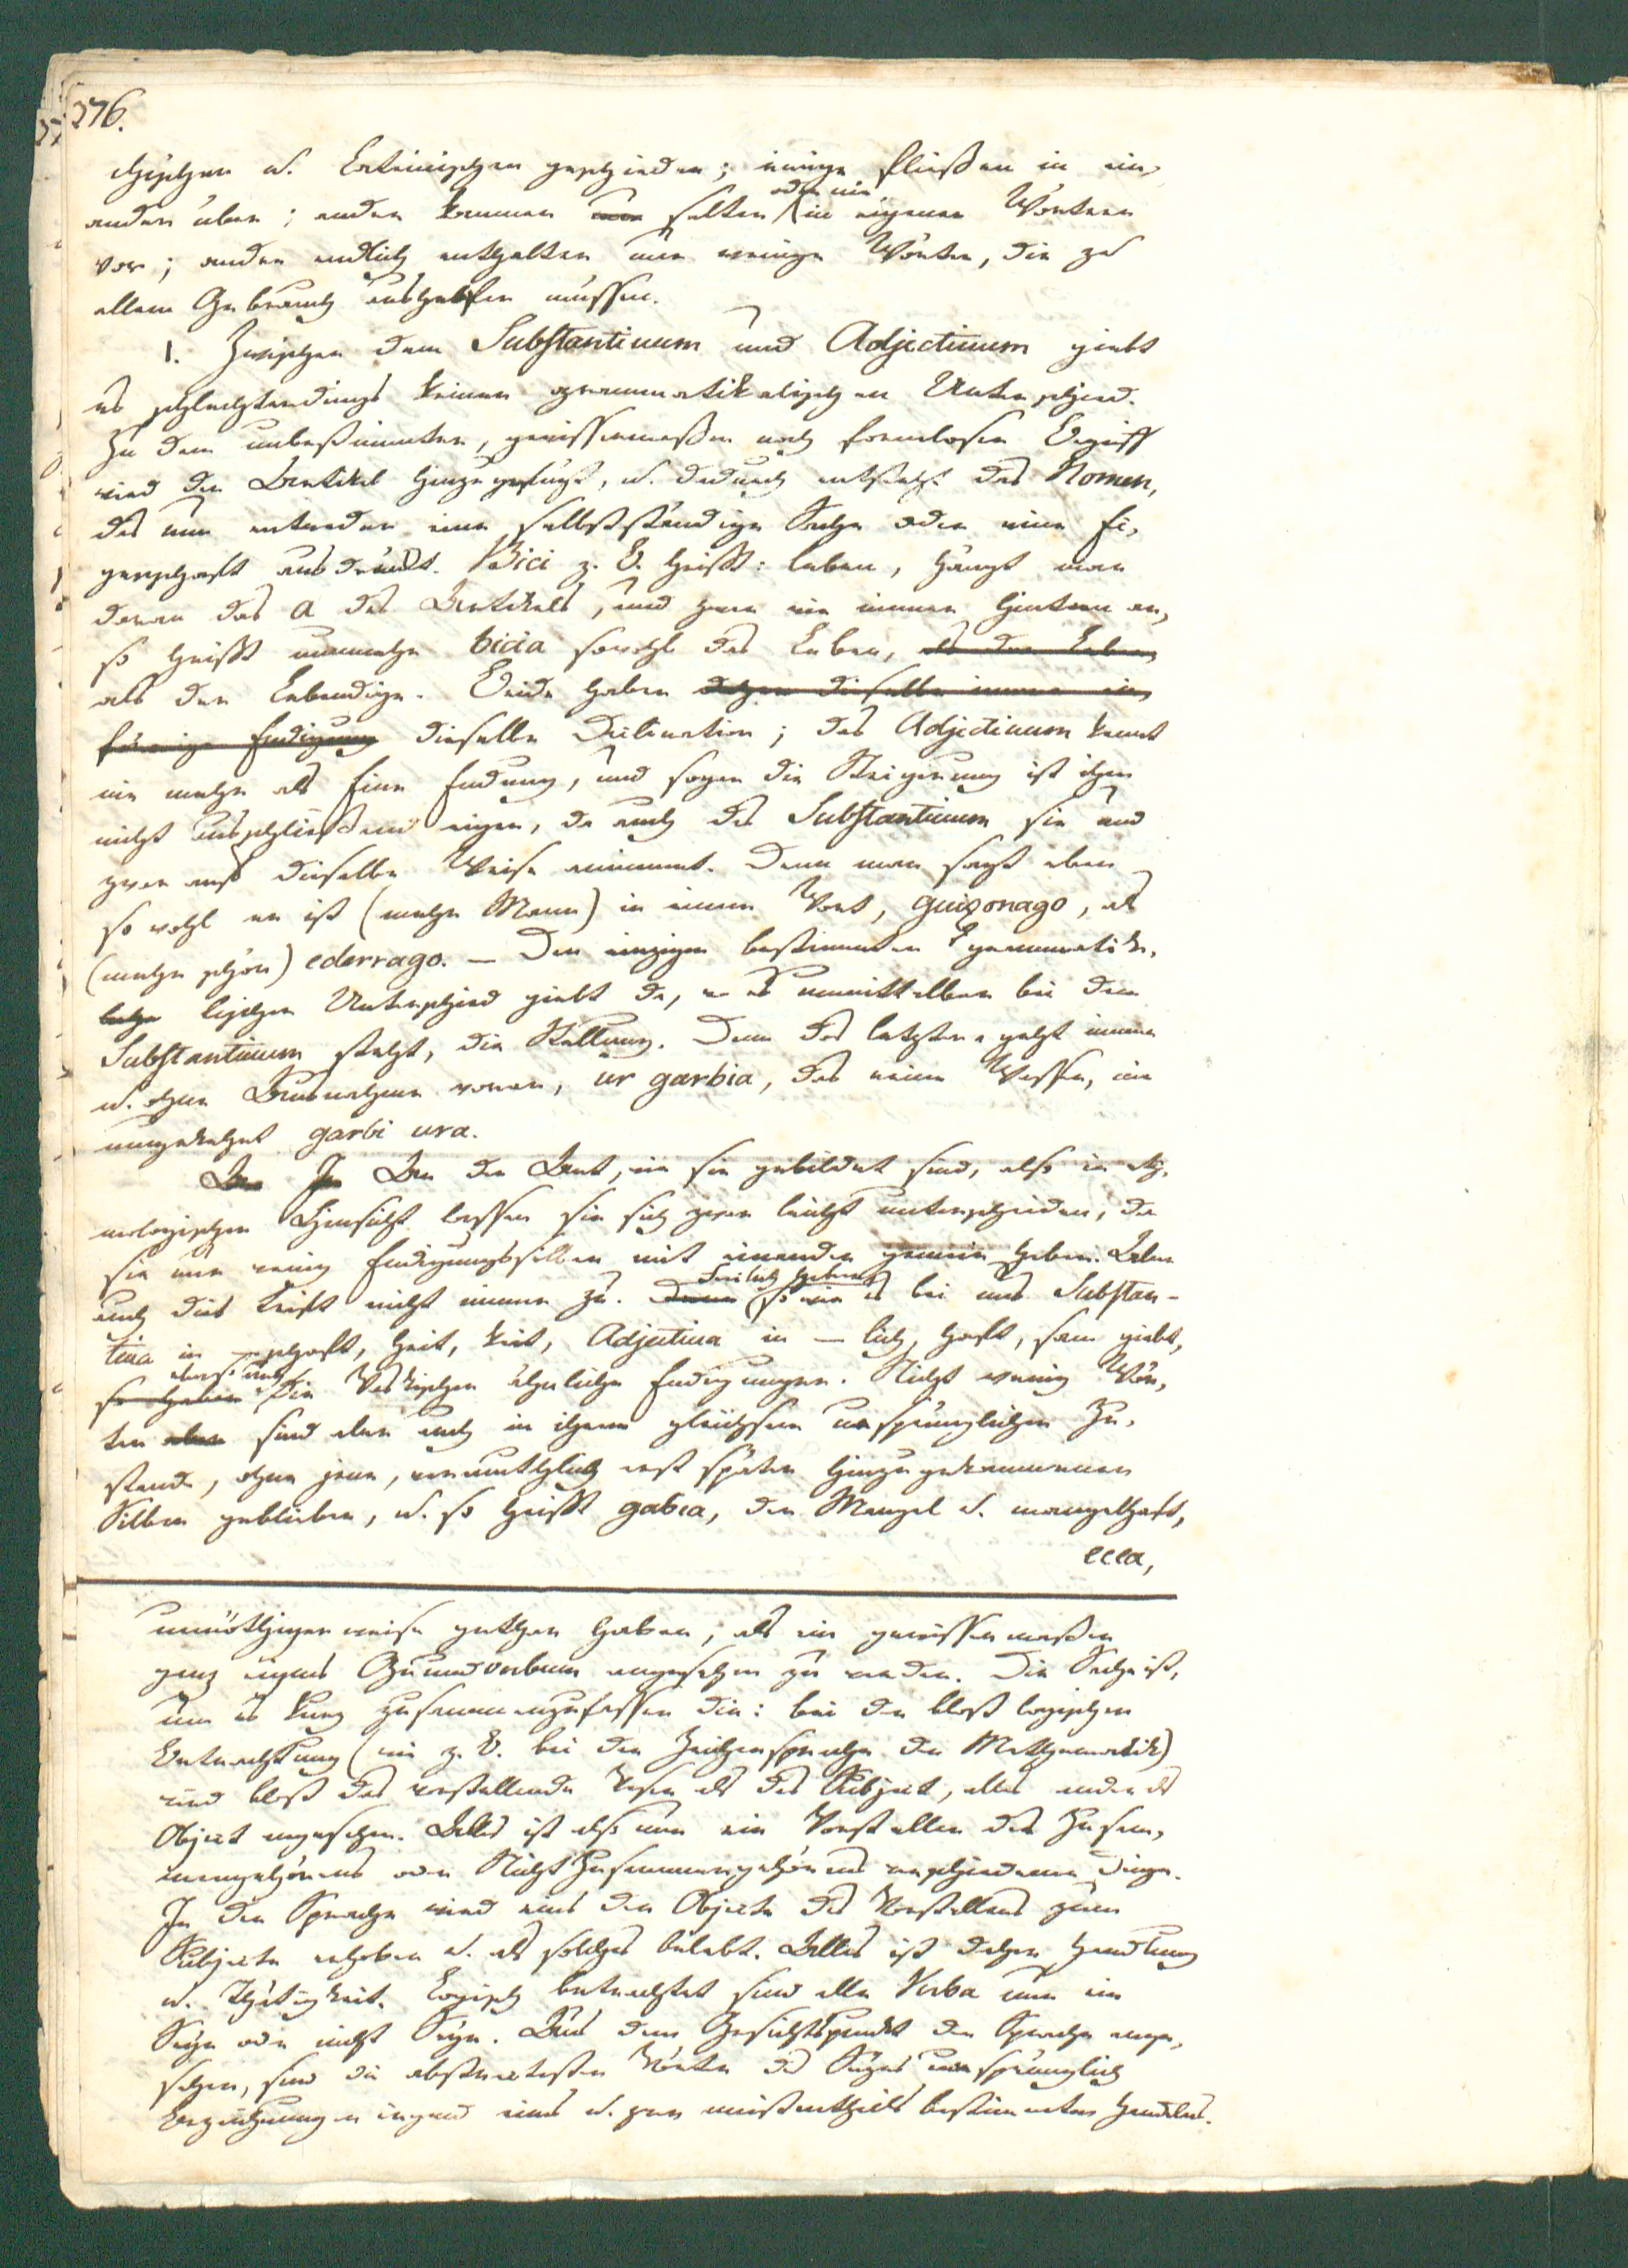 276.
chischen u. Lateinischen geschieden; einige fließen in ein-
ander über; andre kommen nur selten oder nie in eigenen Wörtern
vor; andre endlich enthalten nur wenige Wörter, die zu
allem Gebrauch aushelfen müssen.
1. Zwischen dem Substantivum und Adjectivum giebt
es schlechterdings keinen grammatikalischen Unterschied.
Zu dem unbestimmten, gewissermaßen noch formlosen Begriff
wird der Artikel hinzugefügt, u. dadurch entsteht das Nomen,
das nun entweder eine selbstständige Sache oder eine Ei-
genschaft ausdruckt. Bici z. B. heißt: leben, hängt man
daran das a des Artikels, und zwar wie immer hinten an,
so heißt nunmehr bicia sowohl das Leben, als der Leben
als der Lebendige. Beide haben daher dieselbe immer ein-
förmige Endigung dieselbe Declination; das Adjectivum kennt
nie mehr als Eine Endung, und sogar die Steigerung ist ihm
nicht ausschließend eigen, da auch das Substantivum sie und
zwar auf dieselbe Weise annimmt. Denn man sagt eben
so wohl er ist (mehr Mann) in einem Wort, guizonago, als
(mehr schön) ederrago. — Den einzigen bestimmten grammatika-
lischen Unterschied giebt da, wo es unmittelbar bei dem
Substantivum steht, die Stellung. Denn das letztere geht immer
u. ohne Ausnahme voran, ur garbia, das reine Wasser, nie
umgekehrt garbi ura.
An der Art, wie sie gebildet sind, also in ety-
mologischer Hinsicht lassen sie sich zwar leicht unterscheiden, da
sie nur wenig Endigungssilben mit einander gemein haben. Aber
auch dies trift nicht immer zu. Denn Freilich haben so wie es bei uns Substan-
tiva in — schaft, heit, keit, Adjectiva in — lich, haft, sam giebt,
so haben eben so auch die Vaskischen ähnliche Endigungen. Nicht wenig Wör-
ter aber sind aber auch in ihrem gleichsam ursprünglichen Zu-
stande, ohne jene, vermuthlich erst später hinzugekommenen
Silben geblieben, u. so heißt gabea, der Mangel u. mangelhaft,
ecea,
unnöthigerweise gethan haben, als ein gewissermaßen
ganz eigens Grundverbum angesehen zu werden. Die Sache ist,
um es kurz zusammenzufassen die: bei der bloß logischen
Betrachtung (wie z. B. bei der Zeichensprache der Mathematik)
wird bloß das vorstellende Wesen als das Subject, alles andre als
Object angesehen. Alles ist also nur ein Vorstellen des Zusam-
mengehörens oder Nicht Zusammengehörens verschiedener Dinge.
In der Sprache wird eins der Objecte des Vorstellens zum
Subjecte erhoben u. als solches belebt. Alles ist daher Handlung
u. Thätigkeit. Logisch betrachtet sind alle Verba nur ein
Seyn oder nicht Seyn. Aus dem Gesichtspunkt der Sprache ange-
sehen, sind die abstractesten Wörter des Seyns ursprünglich
Bezeichnungen irgend eines u. zwar meistentheils bestimmten Handelns.